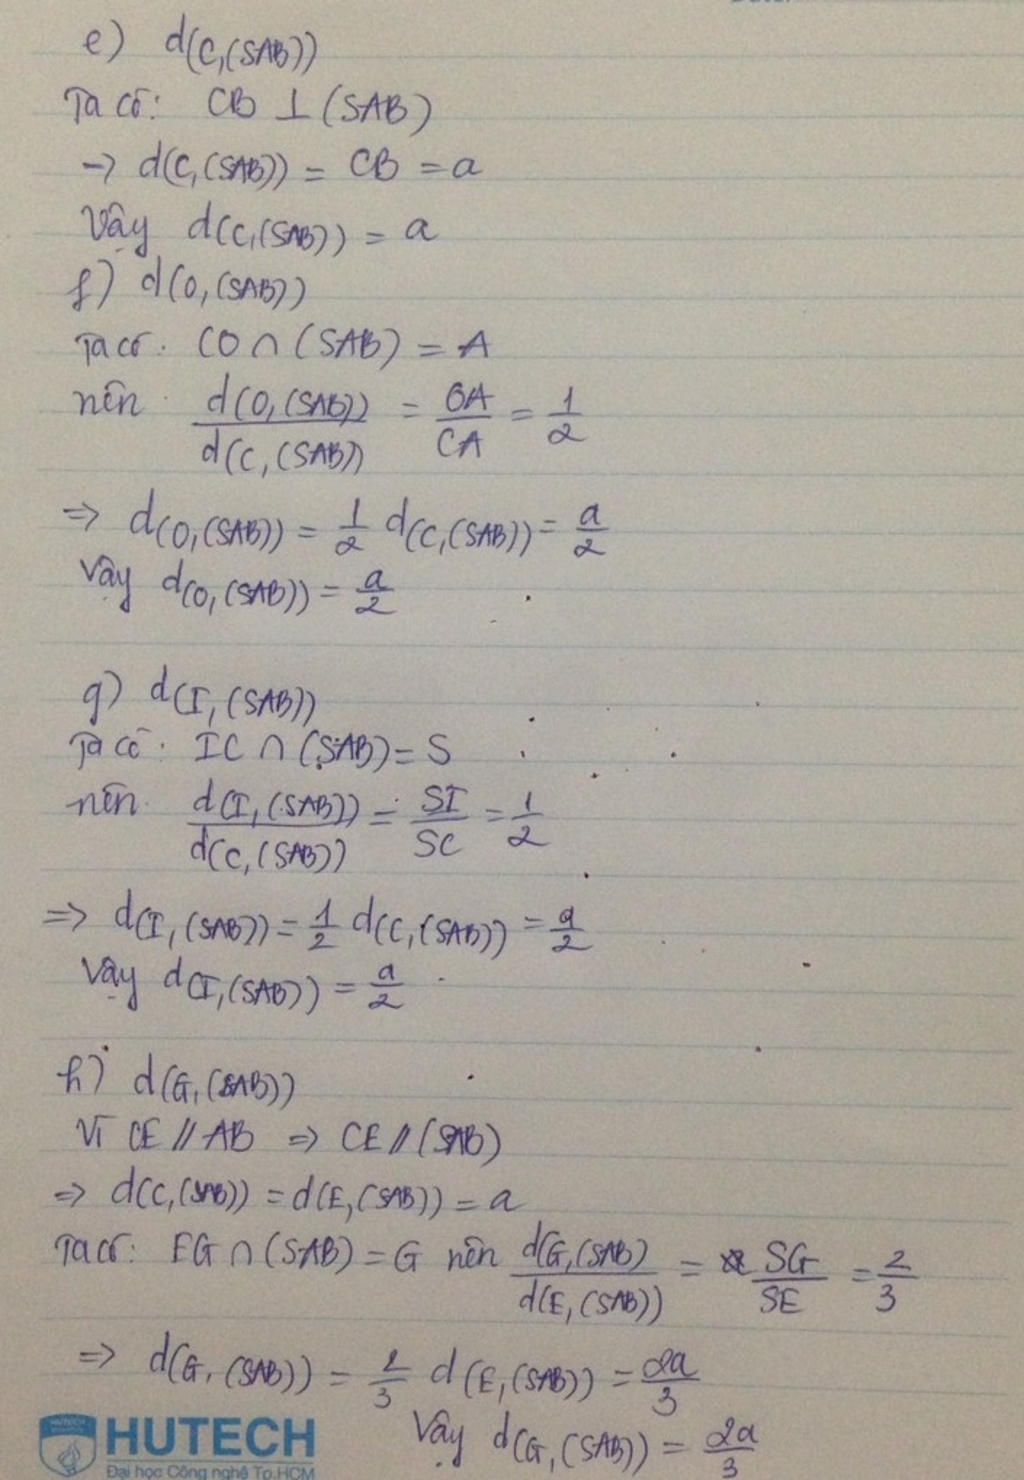 e) d(C,(SAB))
Ta có: CB ⊥ (SAB)
→ d(C,(SAB)) = CB = a
Vậy d(C,(SAB)) = a
f) d(O,(SAB))
Ta có: CO ∩ (SAB) = A
nên d(O,(SAB)) / d(C,(SAB)) = OA / CA = 1/2
⇒ d(O,(SAB)) = 1/2 d(C,(SAB)) = a/2
Vậy d(O,(SAB)) = a/2
g) d(I,(SAB))
Ta có: IC ∩ (SAB) = S
nên d(I,(SAB)) / d(C,(SAB)) = SI / SC = 1/2
⇒ d(I,(SAB)) = 1/2 d(C,(SAB)) = a/2
Vậy d(I,(SAB)) = a/2
h) d(G,(SAB))
Vì CE // AB ⇒ CE // (SAB)
⇒ d(C,(SAB)) = d(E,(SAB)) = a
Ta có: EG ∩ (SAB) = G nên d(G,(SAB) / d(E,(SAB)) = SG / SE = 2/3
⇒ d(G,(SAB)) = 2/3 d(E,(SAB)) = 2a/3
Vậy d(G,(SAB)) = 2a/3
HUTECH
Đại học Công nghệ Tp.HCM